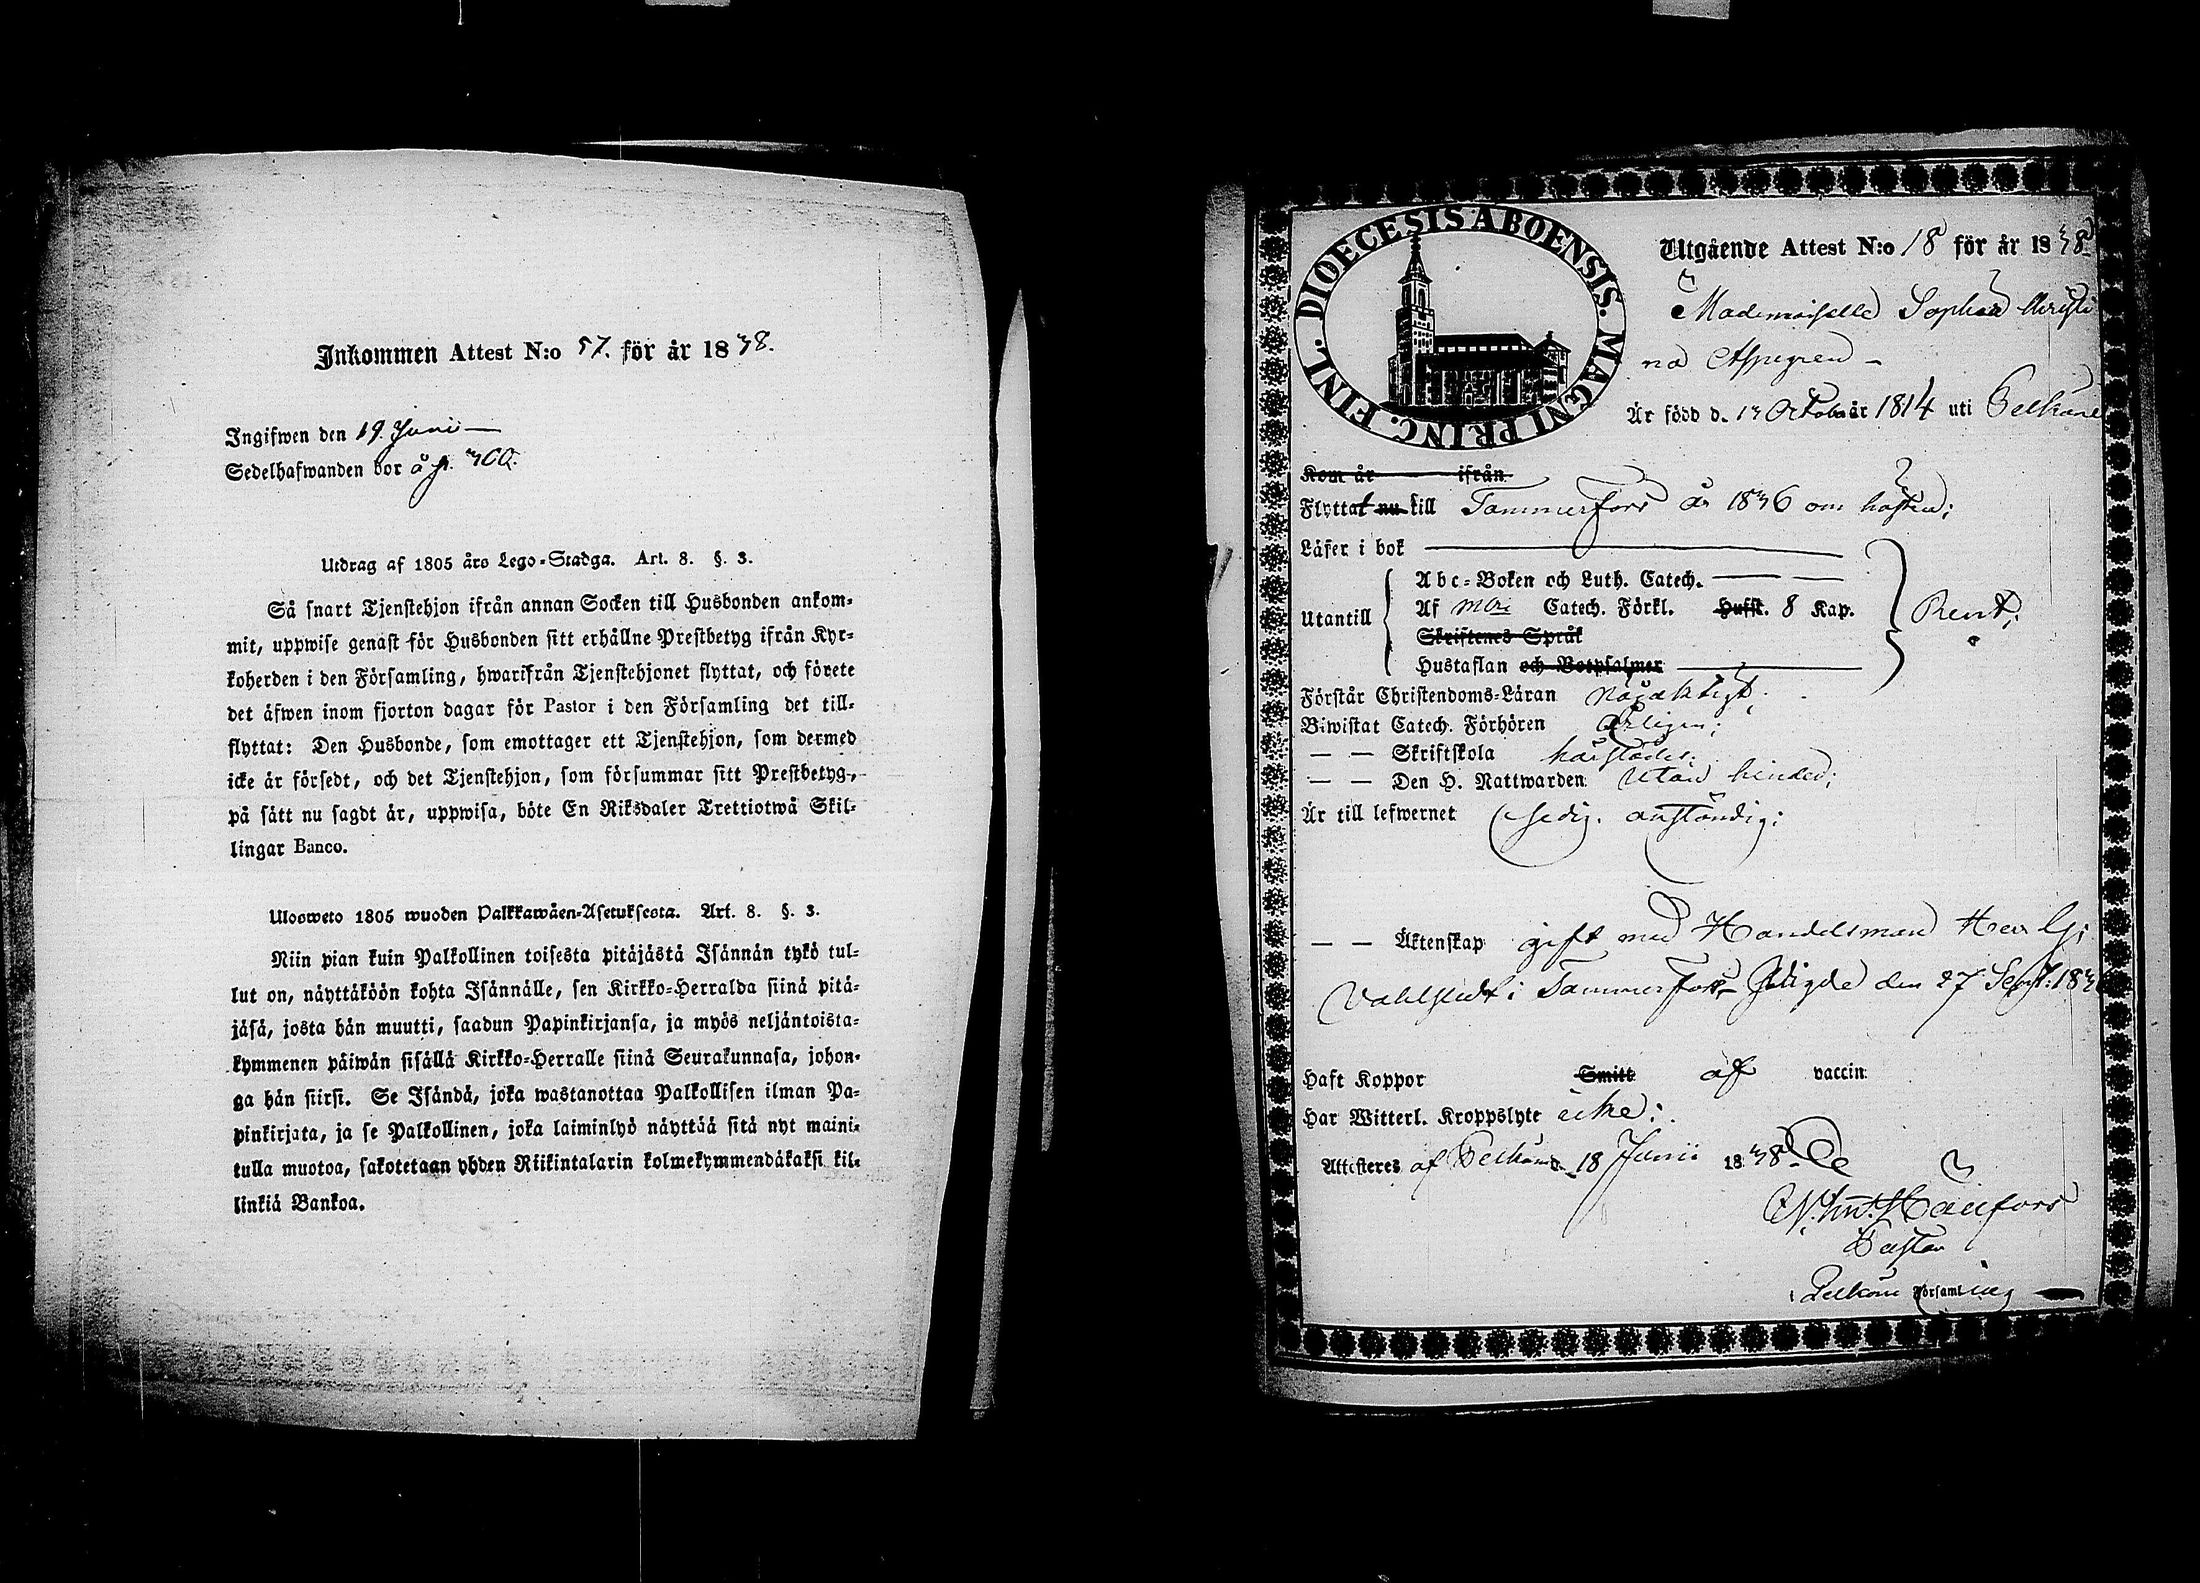 Inkommen Attest N:o 57. för år 1838.
Ingifwen den 19 Juni
Sedelhafwanden bor å p. 300.
Utdrag af 1805 års Lego-Stadga. Art. 8. §. 3.
Så snart Tjenstehjon ifrån annan Socken till Husbonden ankom-
mit, uppwise genast för Husbonden sitt erhållne Prestbetyg ifrån Kyr-
koherden i den Församling, hwarifrån Tjenstehjonet flyttat, och förete
det äfwen inom fjorton dagar för Pastor i den Församling det till-
flyttat: Den Husbonde, som emottager ett Tjenstehjon, som dermed
icke är försedt, och det Tjenstehjon, som försummar sitt Prestbetyg,
på sätt nu sagdt är, uppwisa, böte En Riksdaler Trettiotwå Skil-
lingar Banco.
Ulosweto 1805 wuoden Palkkawäen-Asetuksesta. Art. 8. §. 3.
Niin pian kuin Palkollinen toisesta pitäjästä Isännän tykö tul-
lut on, näyttäköön kohta Isännälle, sen Kirkko-Herralda siinä pitä-
jäsä, josta hän muutti, saadun Papinkirjansa, ja myös neljäntoista-
kymmenen päiwän sisällä Kirkko-Herralle siinä Seurakunnasa, johon-
ga hän siirsi. Se Isändä, joka wastanottaa Palkollisen ilman Pa-
pinkirjata, ja se Palkollinen, joka laiminlyö näyttää sitä nyt maini-
tulla muotoa, sakotetaan yhden Riikintalarin kolmekymmendäkaksi kil-
linkiä Bankoa.
DIOECESIS ABOENSIS. MAGNI PRINC. FINL.
Utgående Attest N:o 18 för år 1838
Mademoiselle Sophia Christi
na Aspegren
Är född d. 13 Octobr år 1814 uti Pelkäne
Kom år ifrån
Flyttat nu till Tammerfors år 1836 om hösten;
Läser i bok
Utantill
Abc-Boken och Luth. Catech.
Af Catech. Förkl. Hufst. 8 Kap.
Skriftenes Språk
Hustaflan och Botpsalmer
Rent;
Förstår Christendoms-Läran nöjaktigt;
Biwistat Catech. Förhören årligen;
— — Skriftskola härstädes;
— — Den H. Nattwarden utan hinder;
Är till lefwernet sedig. anständig;
— — Äktenskap gift med Handelsman Herr G:
Vahlstedt i Tammerfors den 27 Sept: 183
Haft Koppor Smitt af vaccin
Har Witterl. Kroppslyte icke;
Attesteres af Pelkäne 18 Junii 1838
Hällfors
Pastor
i Pelkäne Församling